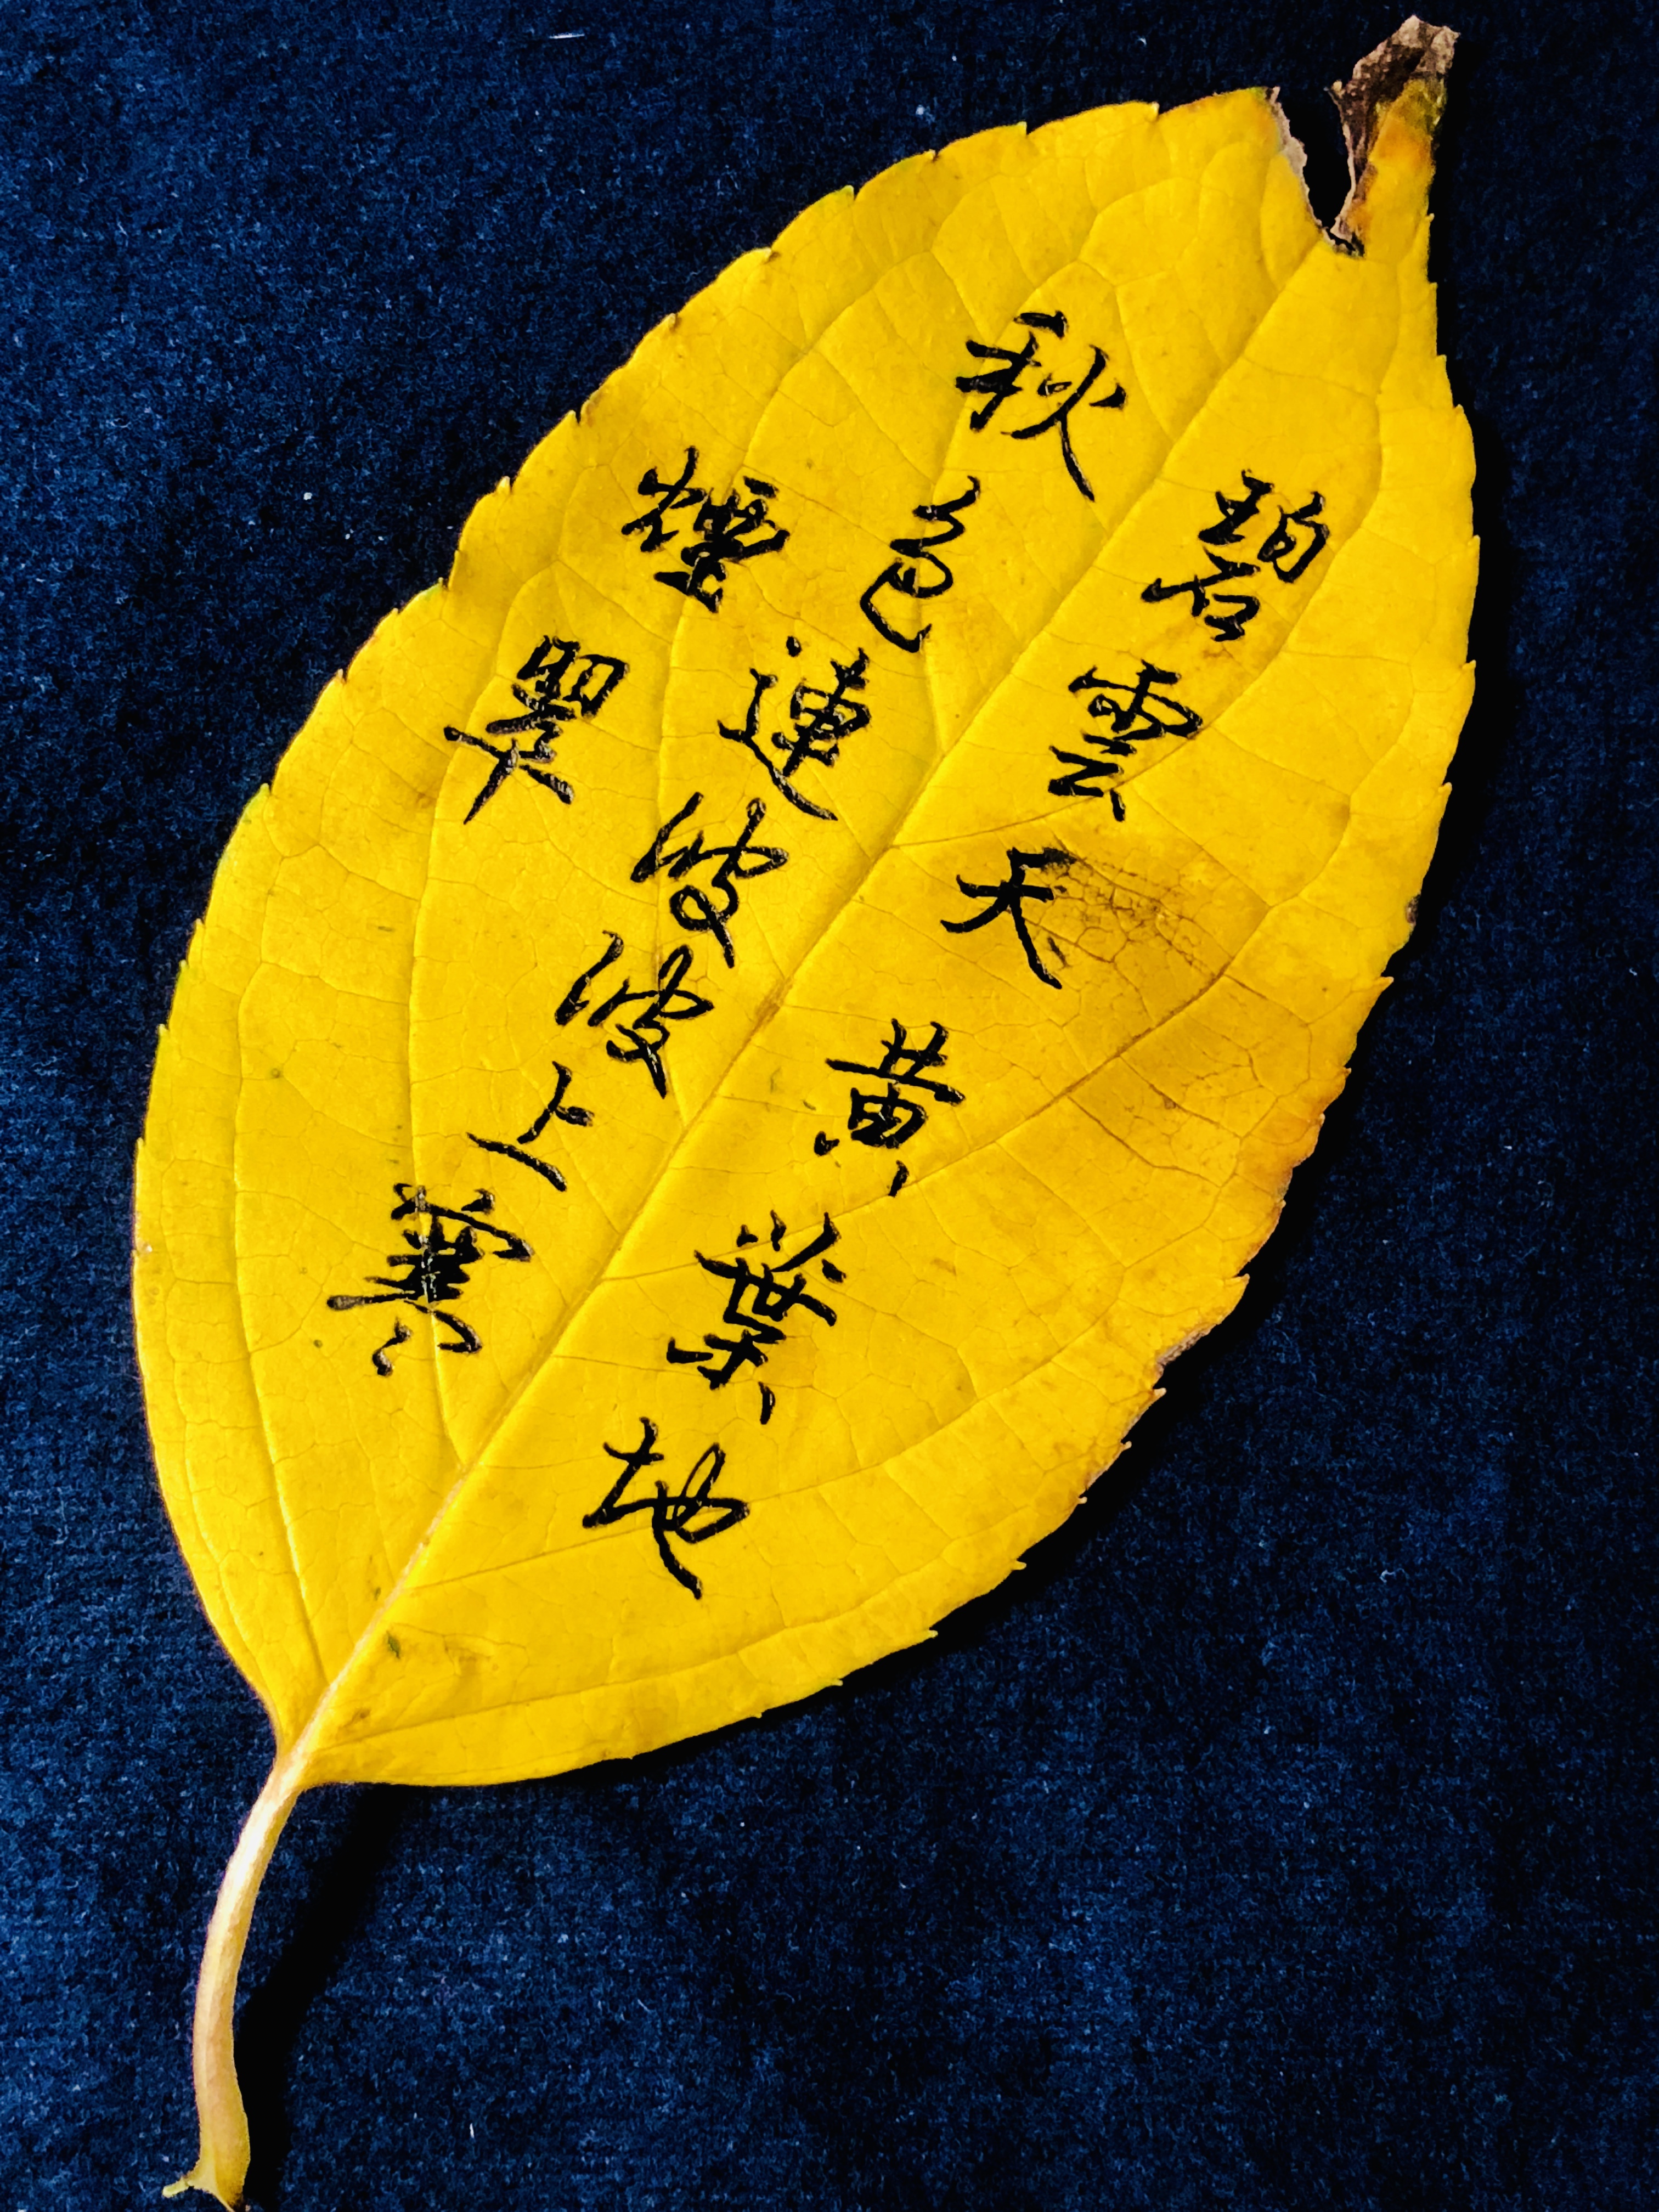 碧雲天黄葉地
秋色連波波上寒
煙翠